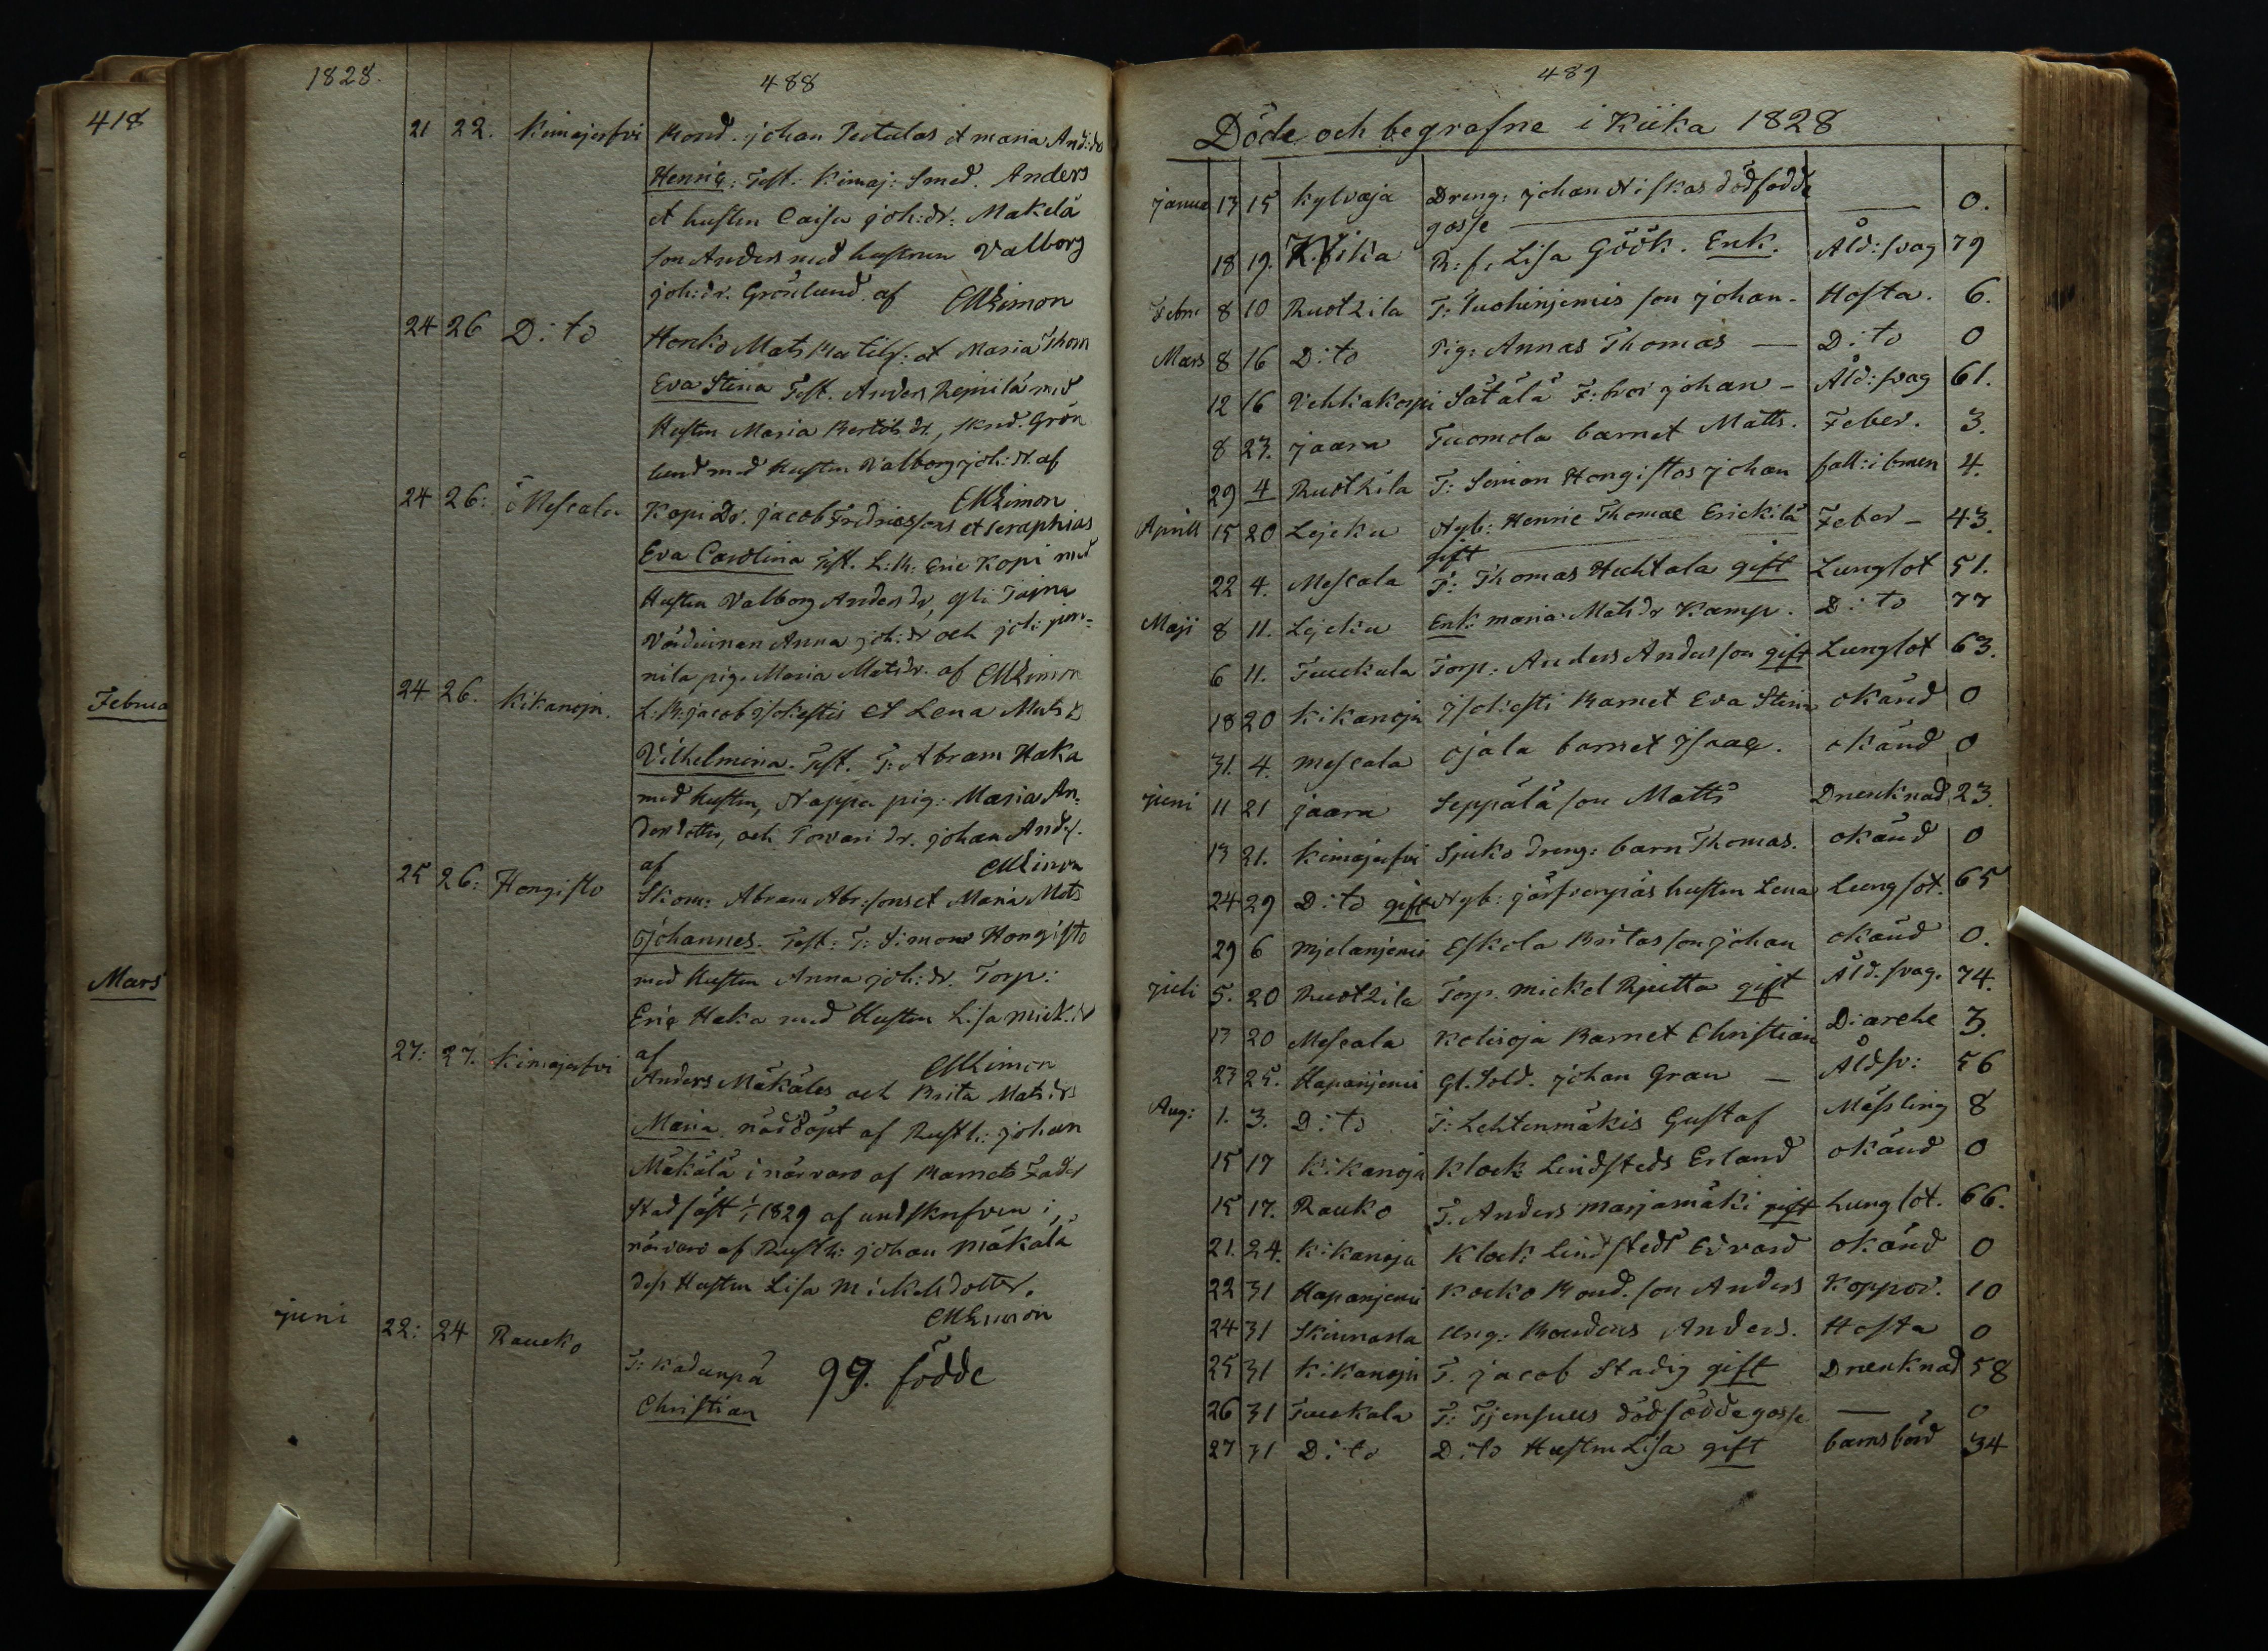 418
Februa
Mars
1828.
488
21 22. Kimajerfvi Bond. johan Pertulas et maria And:dr
Henric: Test. Kimaj: Smed. Anders
et hustrun Caisa joh:dr. Makelä
son Anders med hustrun Valborg
joh:dr. Grönlund. af CMLimon
24 26 D:to Honko Mats Matilss: et Maria Thom
Eva Stina Test. Anders Rejnilä med
Hustrun Maria Bertils dr., Skrd. Grön
lund med Hustrun Valborg joh:dr. af
CMLimon
24 26: ö Mescala Kopi Dr. jacob Fredricssons et Seraphias
Eva Carolina Test. L:B: Eric Kopi med
Hustrun Valborg Anders dr,
Anna joh:dr och joh:
nila pig. Maria Mats dr. af CMLimon
24 26. Kikanoja. L:B: jacob Isokestis et Lena Mats dr
Vilhelmina. Test. T: Abram Haka
med hustrun, Nappa pig: Maria An-
ders dotter, och Torvari dr. johan Anders.
af CMLimon
25 26: Hongisto Skom: Abram Abr:sons et Maria Mats
Johannes. Test: T: Simon Hongisto
med hustrun Anna joh:dr. Torp:
Eric Haka med Hustrun Lisa Mick:dr
af CMLimon
27: 27. Kimajerfvi Anders Mäkäles och Brita Mats:dr
Maria. nöddöpt af Rusth: johan
Mäkälä i närvaro af Barnets Fader
stadfäst 1829 af undskrefven i
närvaro af Rusth: johan Mäkälä
dess Hustrun Lisa Mickelsdotter.
CMLimon
juni 22: 24 Raucko T: Kadunpä
Christian
99. födde
489
Döde och begrafne i Kiika 1828
janua 13 15 Kylvaja Dreng: johan Niskas dödfödde
gosse — 0.
18 19. Kiika R:f. Lisa Göök. Enk. Åld:svag 79
Febru 8 10 Ruotzila T: Tuohinjemis son johan - Hosta. 6.
Mars 8 16 D:to Pig: Annas Thomas — D:to 0
12 16 Vehkakorpi Sätälä F:bror johan - Åld:svag 61.
8 23. jaara Tuomola barnet Matts. Feber. 3.
29 4 Ruotzila T: Simon Hongistos johan fall: i brnen 4.
Aprill 15 20 Lejeku Nyb: Henric Thomae Erickilä Feber - 43.
gift
22 4. Mescala T: Thomas Huhtala gift Lungsot 51.
Maji 8 11. Lejeku Enk: maria Mats dr Kamp. D:to 77
6 11. Tuckala Torp: Anders Andersson gift Lungsot 63.
18 20 Kikanoja Isokesti Barnet Eva Stina okänd 0
31. 4. Mescala Ojala barnet Isaac. okänd 0
juni 11 21 jaara Seppälä son Matts Drunknad 23.
13 21. Kimajerfvi Sjuko dreng: barn Thomas. okänd 0
24 29 D:to gift Nyb: järfvenpäs hustrun Lena Lungsot. 65
29 6 Mjelanjemi Eskola Britas son johan okänd 0.
juli 5. 20 Ruotzila Torp. Mickel Rjutta gift Åld.svag. 74.
13 20 Mescala Kolisoja Barnet Christian Diarehe 3.
23 25. Hapanjemi Gl.Sold. johan Gran — Åldsv: 56
Aug: 1. 3. D:to T: Lehtenmäkis Gustaf Mässling 8
15 17 Kikanoja Klock: Lindsteds Erland okänd 0
15 17. Rauko T. Anders Marjamäki gift Lungsot. 66.
21. 24. Kikanoja Klock: Lindstedt Edvard okänd 0
22 31 Hapanjemi Kocko Bond. son Anders Koppor. 10
24 31 Skinnarla Ung: Bondens Anders. Hosta 0
25 31 Kikanoja T. jacob Stadig gift Drunknad 58
26 31 Tuckala T: Tjensuus dödfödde gosse — 0
27 31 D:to D:to Hustrun Lisa gift barnsbörd 34